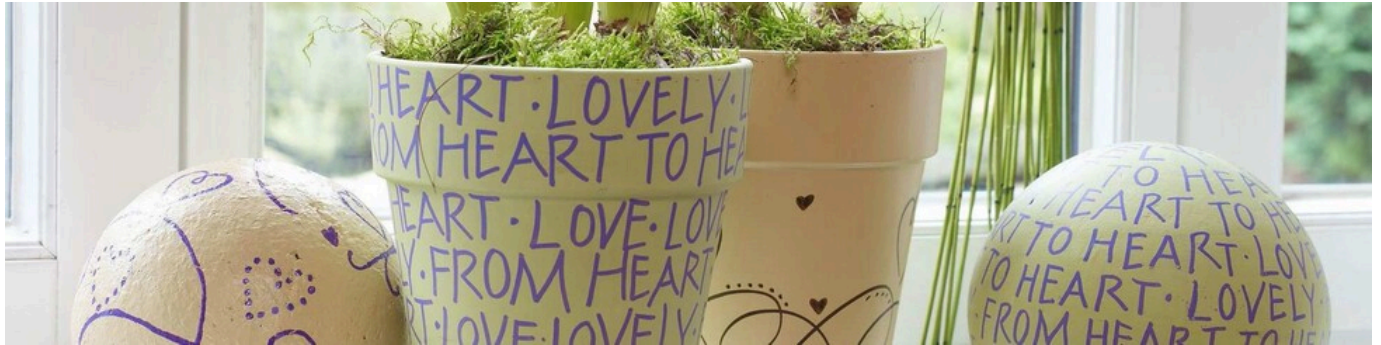 HEART · LOVELY ·
OM HEART TO HEA
HEART · LOVE · LOVE
Y · FROM HEART
RT · LOVE · LOVELY ·
ELY
TO HEA
HEART TO H
RT TO HEART · LOVE
TO HEART · LOVELY
FROM HEART TO HE